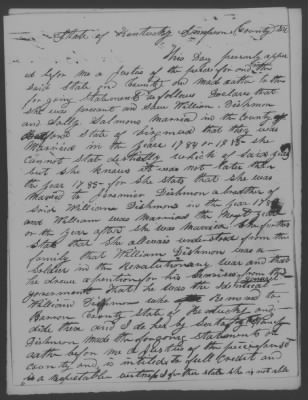 State of Kentucky Simpson County Sct
This Day personly appear
ed before me a Justice of the peace for and
said State and County and made oath to the
forgoing Statement & as follows Declares that
she was present and Saw William Dishmon
and Sally Salmons Married in the County of
State of Virginia that they was
Married in the Year 1784 or 1785 she
Cannot Stat distinctly which of said years
but she knows it was not later than
the Year 1785 for she stats that she was
Married to Jeremier Dishmon a brother of
said William Dishmon in the Year 178
and William was Married the Year
or the Year after she was Married. She further
Stats that She allways understood from the
family that William Dishmon was a
Soldier in the Revolutionary war and that
he drew a pention for his Services from the
government that he was the identical
William Dishmon who Removed to
Barren County State of Kentucky and
died there and I do her by Certify that
Dishmon made the forgoing statement on
oather before me a Justice of the peace for said
County and is intitled to full Credit and
is a respectable witness & further state she is not able